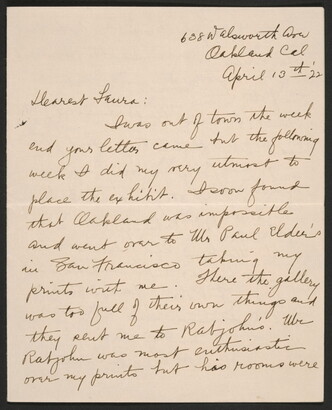 658 Walsworth Ave
Oakland Cal
April 13th '22
Dearest Laura:
I was out of town the week
end your letter came but the following
week I did my very utmost to
place the exhibit. I soon found
that Oakland was impossible
and went over to Mr Paul Elder's
in San Francisco taking my
prints with me. There the gallery
was too full of their own things and
they sent me to Rabjohn's. Mr
Rabjohn was most enthusiastic
over my prints but his rooms were